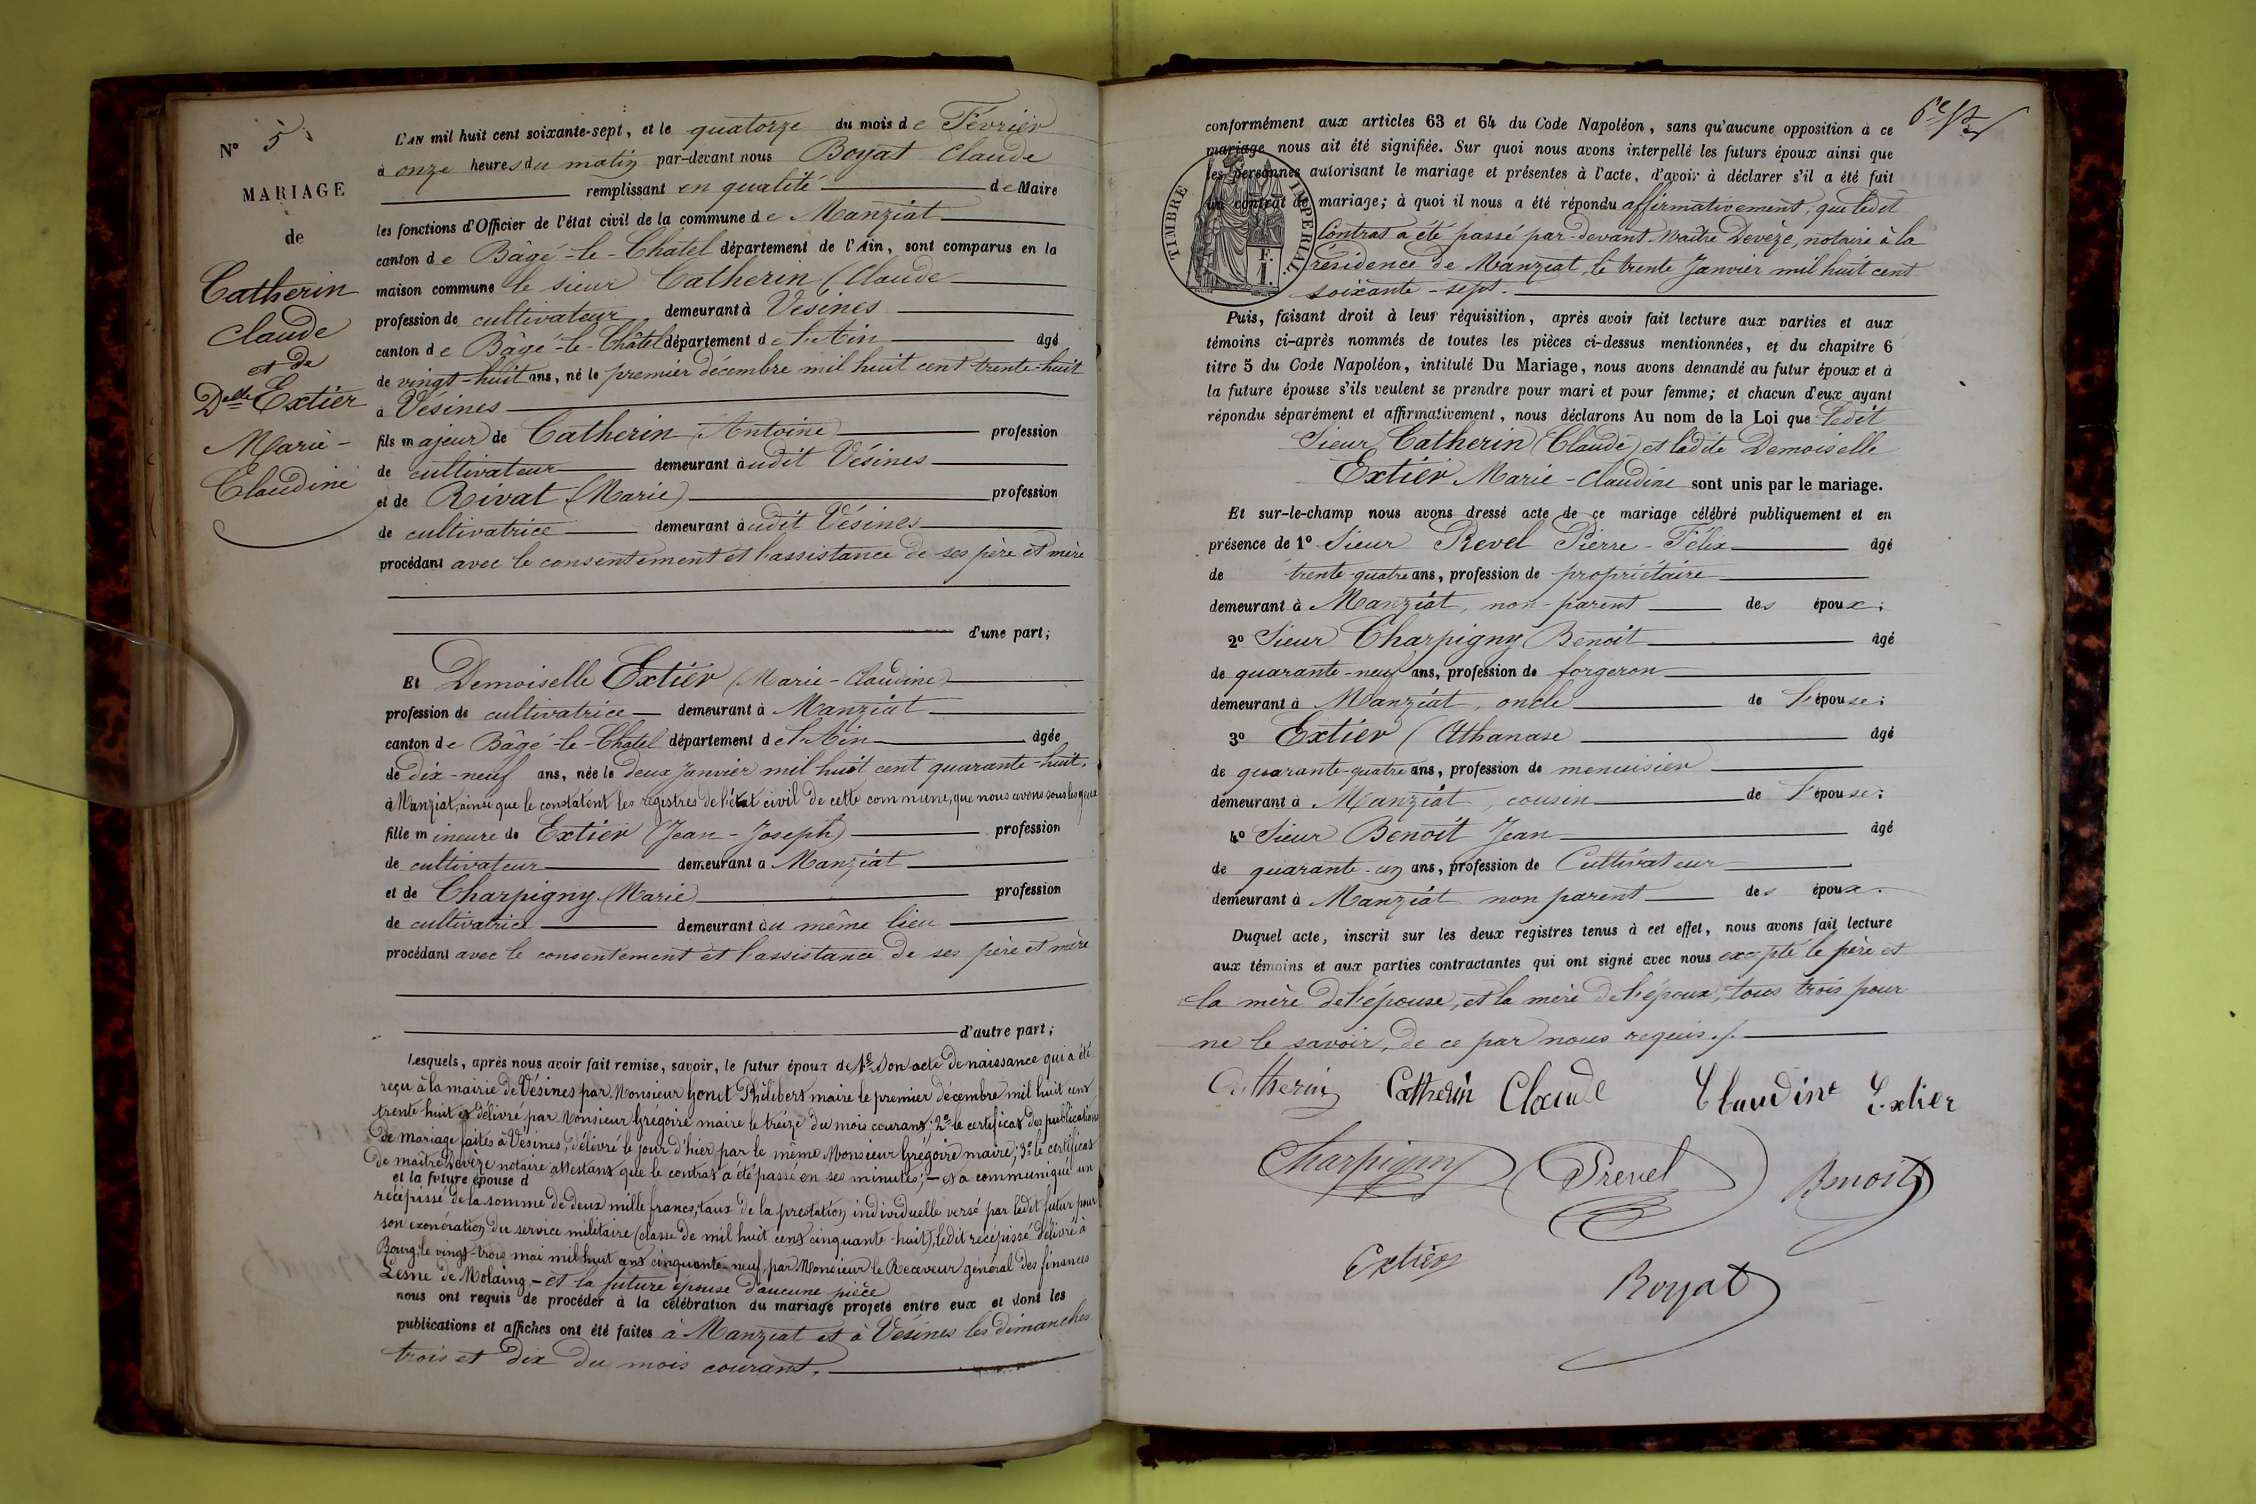 N° 5
MARIAGE
de
Catherin
Claude
et de
Delle Extier
Marie-
Claudine
L'AN mil huit cent soixante-sept, et le quatorze du mois de Février
à onze heures du matin par-devant nous Boyat Claude
remplissant en qualité de Maire
les fonctions d'Officier de l'état civil de la commune de Manziat
canton de Bâgé-le-Chatel département de l'Ain, sont comparus en la
maison commune le sieur Catherin (Claude
profession de cultivateur demeurant à Vésines
canton de Bâgé-le-Châtel département de l'Ain âgé
de vingt-huit ans, né le premier décembre mil huit cent trente-huit
à Vésines
fils majeur de Catherin (Antoine) profession
de cultivateur demeurant audit Vésines
et de Rivat (Marie) profession
de cultivatrice demeurant audit Vésines
procédant avec le consentement et l'assistance de ses père et mère
d'une part;
Et Demoiselle Extier (Marie-Claudine)
profession de cultivatrice demeurant à Manziat
canton de Bâgé-le-Chatel département de l'Ain âgée
de dix-neuf ans, née le deux Janvier mil huit cent quarante-huit,
à Manziat, ainsi que le constatent les registres de l'état civil de cette commune, que nous avons sous les yeux
fille mineure de Extier (Jean-Joseph) profession
de cultivateur demeurant à Manziat
et de Charpigny (Marie) profession
de cultivatrice demeurant au même lieu
procédant avec le consentement et l'assistance de ses père et mère
d'autre part;
Lesquels, après nous avoir fait remise, savoir, le futur époux de 1° Son acte de naissance qui a été
reçu à la mairie de Vésines par Monsieur Gonet Philibert maire le premier décembre mil huit cent
trente-huit et délivré par Monsieur Grégoire maire le treize du mois courant; 2° le certificat des publications
de mariage faites à Vésines, délivré le jour d'hier par le même Monsieur Grégoire maire; 3° le certificat
de maître Devèze notaire attestant que le contrat a été passé en ses minutes; — et a communiqué un
et la future épouse d
récépissé de la somme de deux mille francs, taux de la prestation individuelle versé par ledit futur pour
son exonération du service militaire (classe de mil huit cent cinquante-huit), ledit récépissé délivré à
Bourg, le vingt-trois mai mil huit cent cinquante-neuf, par Monsieur le Receveur général des finances
Lesne de Molaing, — et la future épouse d'aucune pièce
nous ont requis de procéder à la célébration du mariage projeté entre eux et dont les
publications et affiches ont été faites à Manziat et à Vésines les dimanches
trois et dix du mois courant.
conformément aux articles 63 et 64 du Code Napoléon, sans qu'aucune opposition à ce
mariage nous ait été signifiée. Sur quoi nous avons interpellé les futurs époux ainsi que
les personnes autorisant le mariage et présentes à l'acte, d'avoir à déclarer s'il a été fait
un contrat de mariage; à quoi il nous a été répondu affirmativement, que ledit
Contrat a été passé par-devant Maître Devèze, notaire à la
résidence de Manziat, le trente Janvier mil huit cent
soixante-sept.
TIMBRE IMPERIAL.
1 F.
Puis, faisant droit à leur réquisition, après avoir fait lecture aux parties et aux
témoins ci-après nommés de toutes les pièces ci-dessus mentionnées, et du chapitre 6
titre 5 du Code Napoléon, intitulé Du Mariage, nous avons demandé au futur époux et à
la future épouse s'ils veulent se prendre pour mari et pour femme; et chacun d'eux ayant
répondu séparément et affirmativement, nous déclarons Au nom de la Loi que ledit
Sieur Catherin (Claude) et ladite Demoiselle
Extier Marie-Claudine sont unis par le mariage.
Et sur-le-champ nous avons dressé acte de ce mariage célébré publiquement et en
présence de 1° Sieur Revel Pierre-Félix âgé
de trente-quatre ans, profession de propriétaire
demeurant à Manziat, non-parent des époux;
2° Sieur Charpigny Benoit âgé
de quarante-neuf ans, profession de forgeron
demeurant à Manziat, oncle de l'épouse;
3° Extier (Athanase âgé
de quarante-quatre ans, profession de menuisier
demeurant à Manziat, cousin de l'épouse;
4° Sieur Benoit Jean âgé
de quarante-un ans, profession de Cultivateur
demeurant à Manziat non parent des époux.
Duquel acte, inscrit sur les deux registres tenus à cet effet, nous avons fait lecture
aux témoins et aux parties contractantes qui ont signé avec nous excepté le père et
la mère de l'épouse, et la mère de l'époux, tous trois pour
ne le savoir, de ce par nous requis./.
Catherin Catherin Claude Claudine Extier
Charpigny Prevel Benoit
Extier
Boyat